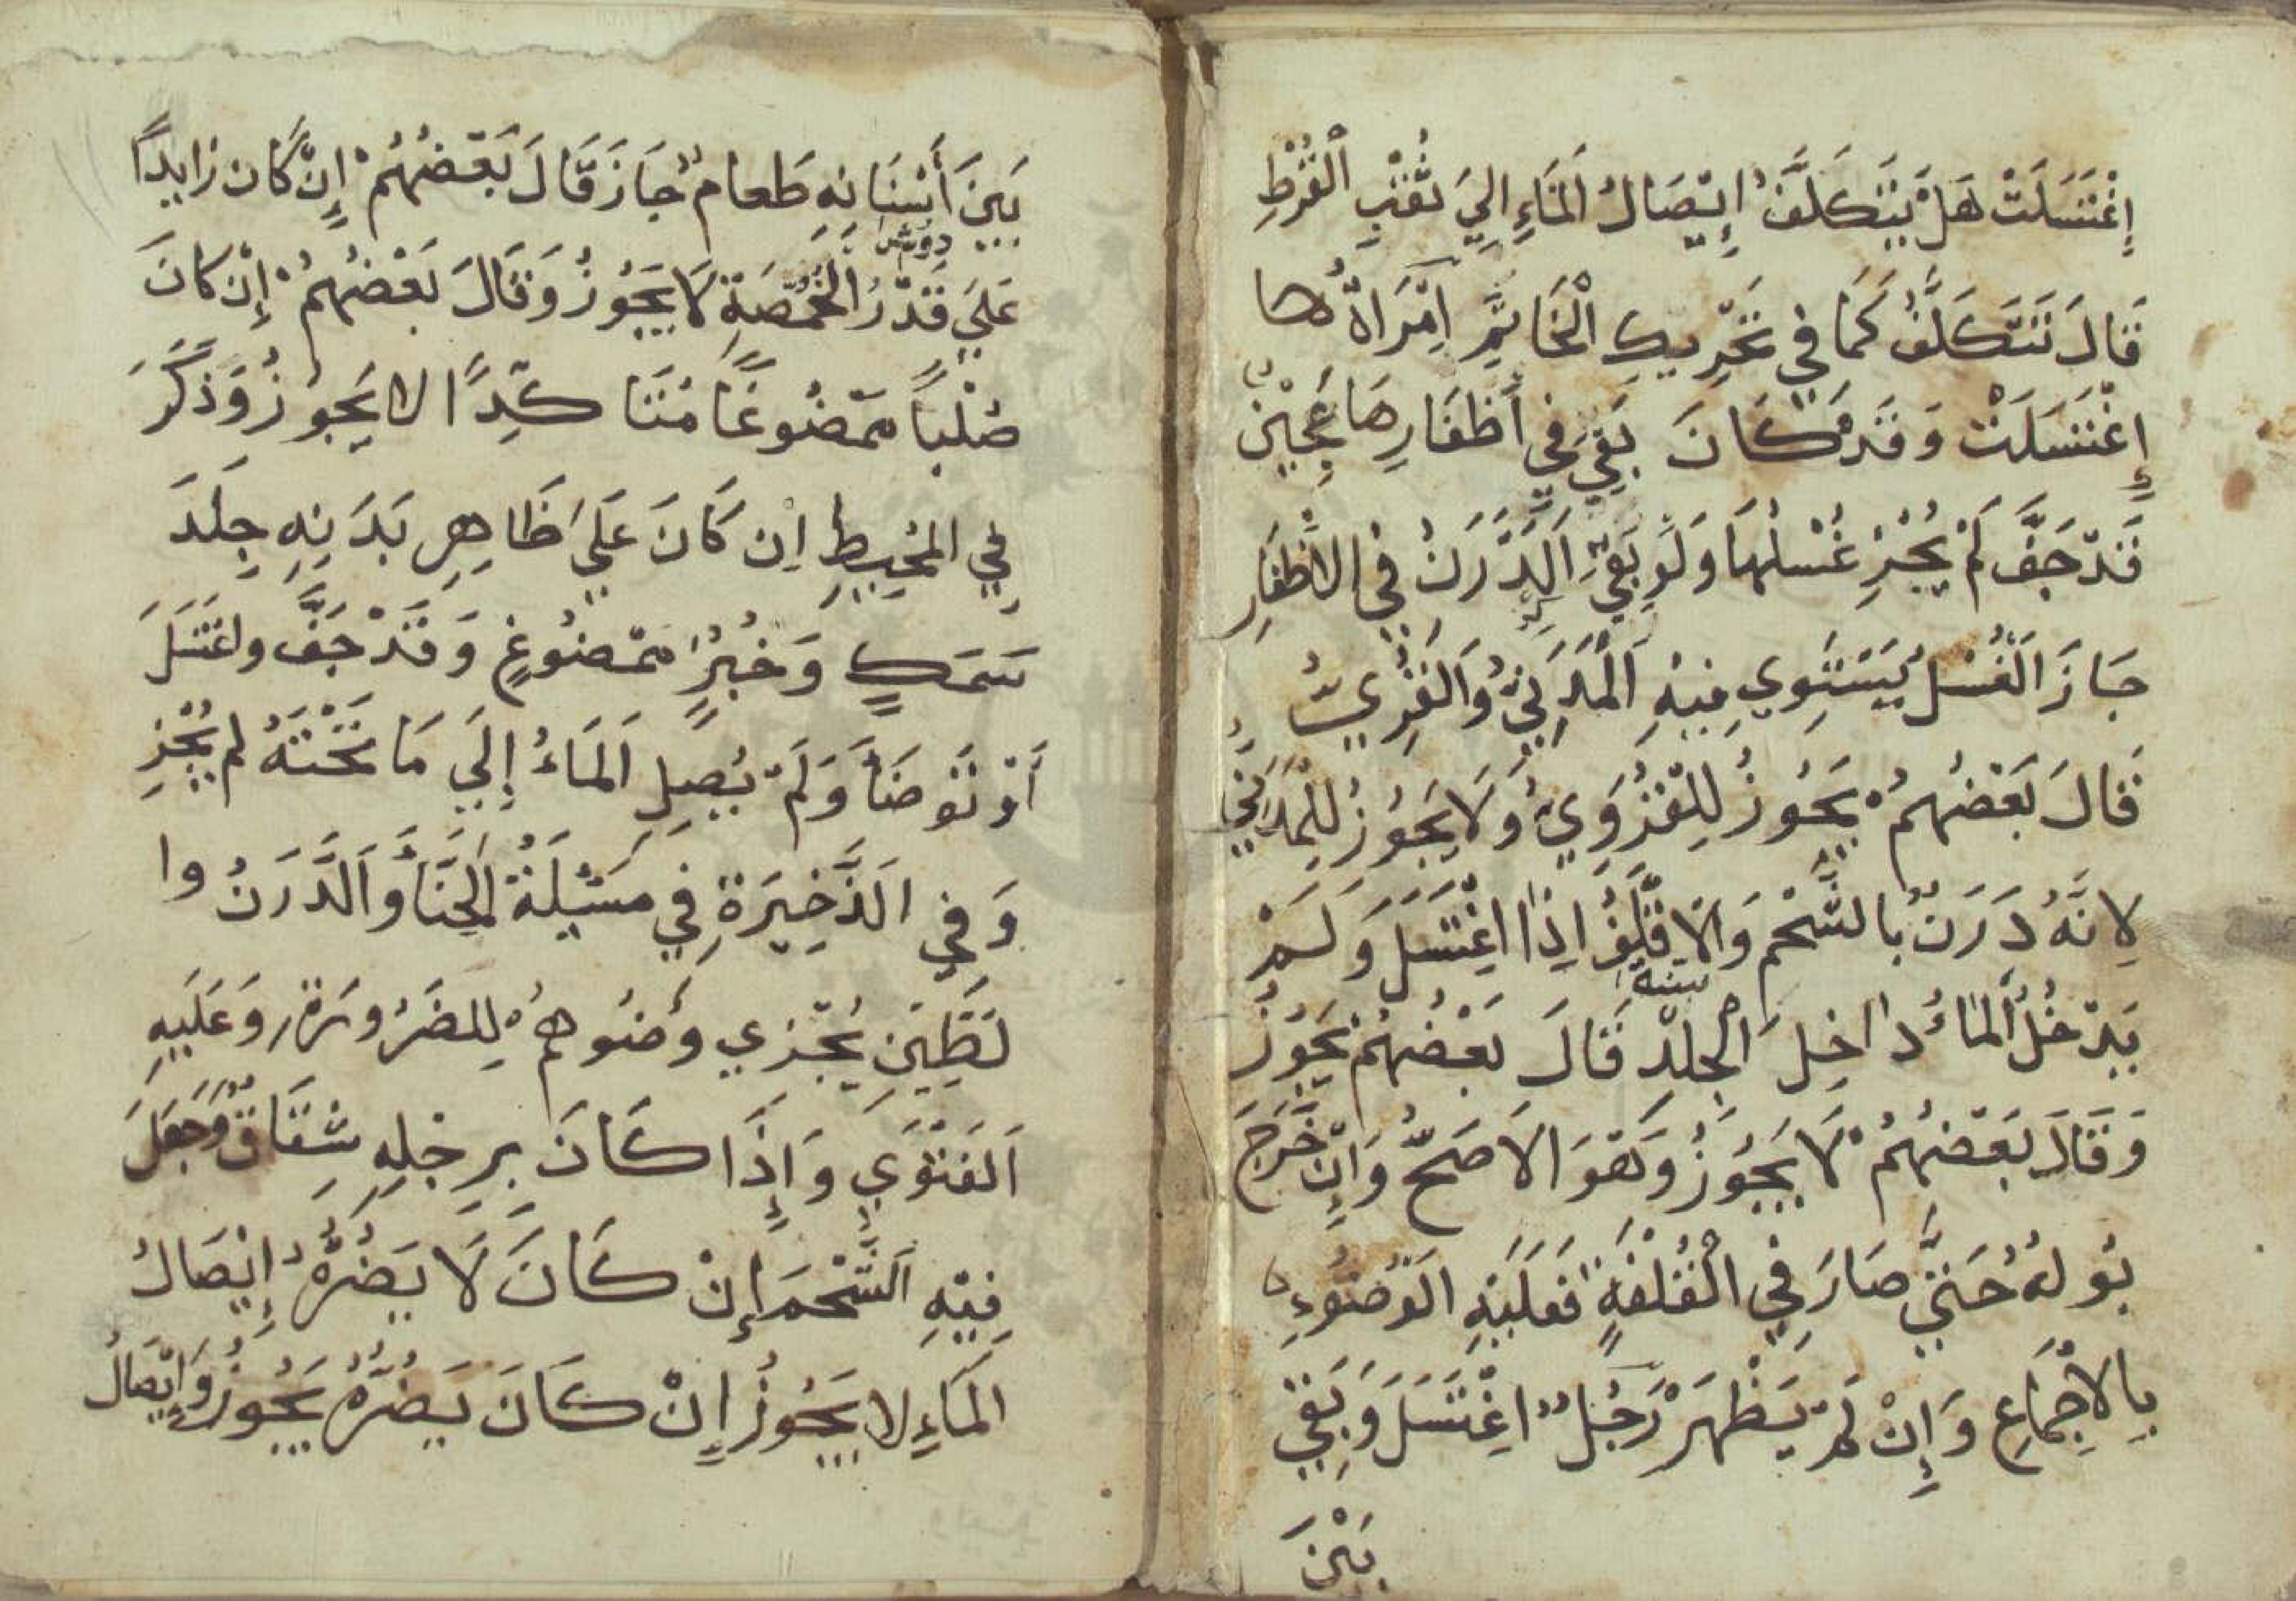 إِغْتَسَلَتْ هَلْ يَتَكَلَّفُ إِيْصَالُ الْمَاءِ إِلَيَ ثُقْبِ الْقُرْطِ
قَالَ تَتَكَلَّفُ كَمَا فِي تَحْرِيكِ الْخَاتِمِ اِمْرَاةٌ ها
إِغْتَسَلَتْ وَقَدْ كَانَ بَقِيَ فِي أَظْفَارِهَا عَجِيْنٌ
قَدْ جَفَّ لَمْ يُجْزِ غُسْلُهَا وَلَوْ بَقِيَ الدَّرَنُ فِي الاظْفَارِ
جَازَ الْغُسْلُ يَسْتَوِي فِيْهِ الْمَدَنِيُّ وَالْقَرْيِيُّ
قَالَ بَعْضُهُمْ يَجُوزُ لِلْقَرَوِيِّ وَلَا يَجُوزُ لِلْمَدَنِيِّ
لِانَّهُ دَرَنٌ بالشَّحْمِ وَالاقْلَفُ اِذَا اغْتَسَلَ وَلَمْ
يَدْخُلِ الْمَاءُ داخِلَ الْجِلْدِ قَالَ بَعْضُهُمْ يَجُوزُ
وَقَالَ بَعْضُهُمْ لَا يَجُوزُ وَهُوَ الاَصَحُّ وَإِنْ خَرَجَ
بَولُهُ حَتَّيَ صَارَ فِي الْقُلْفَةِ فَعَلَيْهِ الْوُضُوْءِ
بِالاِجْمَاعِ وَإِنْ لَمْ يَظْهَرْ رَجُلٌ اغْتَسَلَ وَبَقِيَ
بَيْنَ
بَيْنَ أَسْنَانِهِ طَعامٌ جَازَ قَالَ بَعْضُهُمْ إِنْ كَان زَايِدًا
عَلَيَ قَدْرِ الْحُمُّصَةِ لَا يَجُوزُ وَقَالَ بَعْضُهُمْ إِنْ كَانَ
صُلْبًا مَمْضُوغًا مُتَنَا كِّدًا لا يَجُوزُ وَذَكَرَ
فِي الْمُحِيطِ اِن كَانَ عَلَيَ ظَاهِرِ بَدَنِهِ جِلْدَ
سَمَكٍ وَخُبْزٍ مَمْضُوغٍ وَقَدْ جَفَّ واغْتَسَلَ
أَوْ تَوَضَأَ وَلَمْ يُصِلِ الْمَاءُ إِلَيَ مَا تَحْتَهُ لم يُجْزِ
وَفِي الذَّخِيَرَةِ فِي مَسْئَلَةُ الْحِنَّاءِ وَالدَّرَنُ وا
لطِّيْنِ يُجْزِي وُضُوهُمْ لِلضَرُورَةِ وَعَلَيْهِ
الْفَتْوَي وَإِذَا كَانَ بِرِجْلِهِ شِقَاقٌ وَجَعَلَ
فِيْهِ الشَّحْمَ إِنْ كَانَ لَا يَضُرُّهُ إِيْصَالُ
الْمَاءِ لا يَجُوزُ إِنْ كَانَ يَضُرُّهُ يَجُوزُ وَإِيْصَالُ